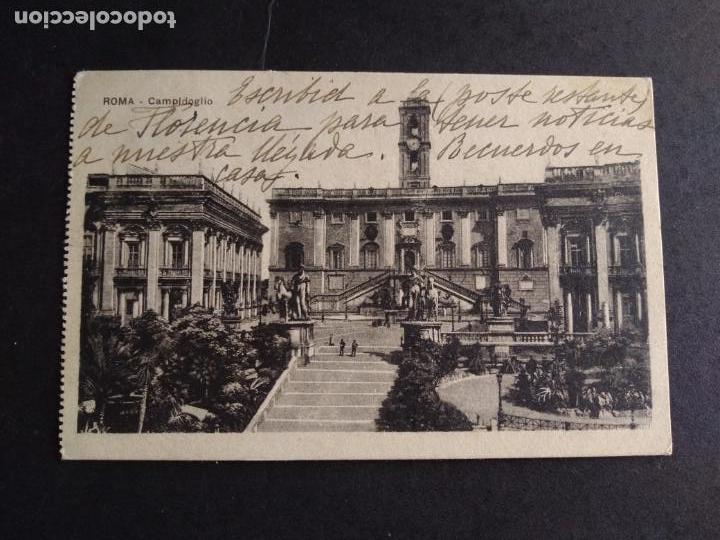 todocoleccion
ROMA - Campidoglio
Escribid a la (poste restante)
de Florencia para tener noticias
a nuestra llegada. Recuerdos en
casa,